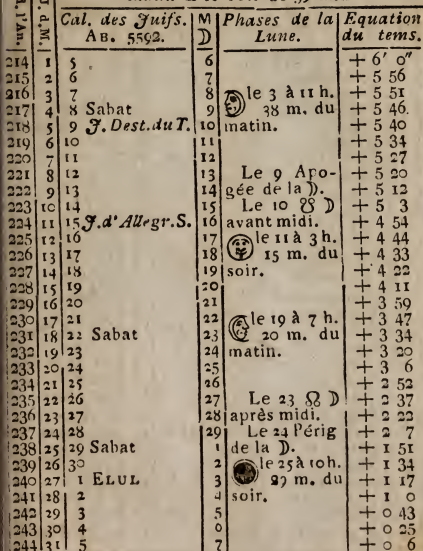 j. de l'An. j. d. M. Cal. des Juifs. AB. 5592. M ☽ Phases de la Lune. Equation du tems.
214 1 5 6 + 6' 0"
215 2 6 7 + 5 56
216 3 7 8 le 3 à 11 h. + 5 51
217 4 8 Sabat 9 38 m. du + 5 46.
218 5 9 J. Dest. du T. 10 matin. + 5 40
219 6 10 11 + 5 34
220 7 11 12 + 5 27
221 8 12 13 Le 9 Apo- + 5 20
222 9 13 14 gée de la ☽. + 5 12
223 10 14 15 Le 10 ☋ ☽ + 5 3
224 11 15 J. d'Allegr. S. 16 avant midi. + 4 54
225 12 16 17 le 11 à 3 h. + 4 44
226 13 17 18 15 m. du + 4 33
227 14 18 19 soir. + 4 22
228 15 19 20 + 4 11
229 16 20 21 + 3 59
230 17 21 22 le 19 à 7 h. + 3 47
231 18 22 Sabat 23 20 m. du + 3 34
232 19 23 24 matin. + 3 20
233 20 24 25 + 3 6
234 21 25 26 + 2 52
235 22 26 27 Le 23 ☊ ☽ + 2 37
236 23 27 28 après midi. + 2 22
237 24 28 29 Le 24 Périg + 2 7
238 25 29 Sabat 1 de la ☽. + 1 51
239 26 30 2 le 25 à 10h. + 1 34
240 27 1 ELUL 3 27 m. du + 1 17
241 28 2 4 soir. + 1 0
242 29 3 5 + 0 43
243 30 4 6 + 0 25
244 31 5 7 + 0 6